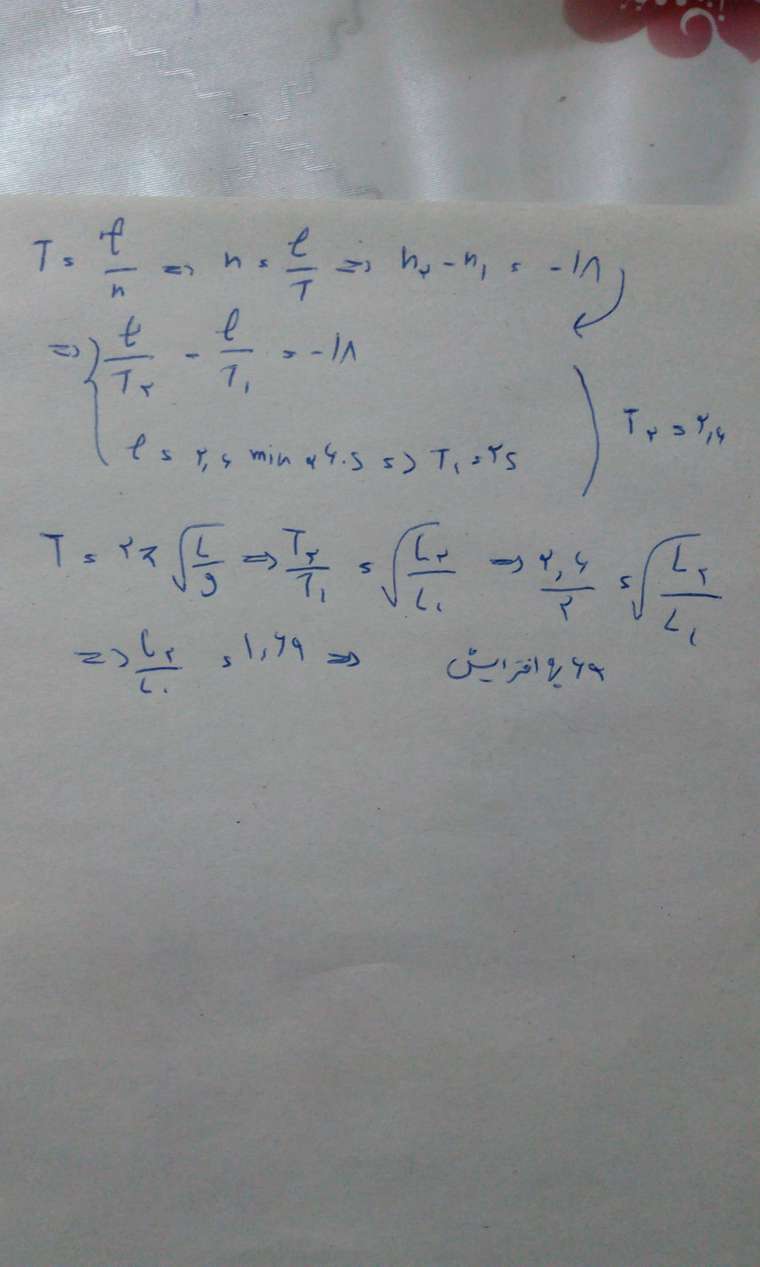 T = t/n => n = t/T => n۲ - n۱ = -۱۸
=> { t/T۲ - t/T۱ = -۱۸
t = ۲,۶ min × ۶۰ s => T۱ = ۲s
T۲ = ۲,۶
T = ۲π √(L/g) => T۲/T۱ = √(L۲/L۱) => ۲,۶/۲ = √(L۲/L۱)
=> L۲/L۱ = ۱,۶۹ => ۶۹٪ افزایش